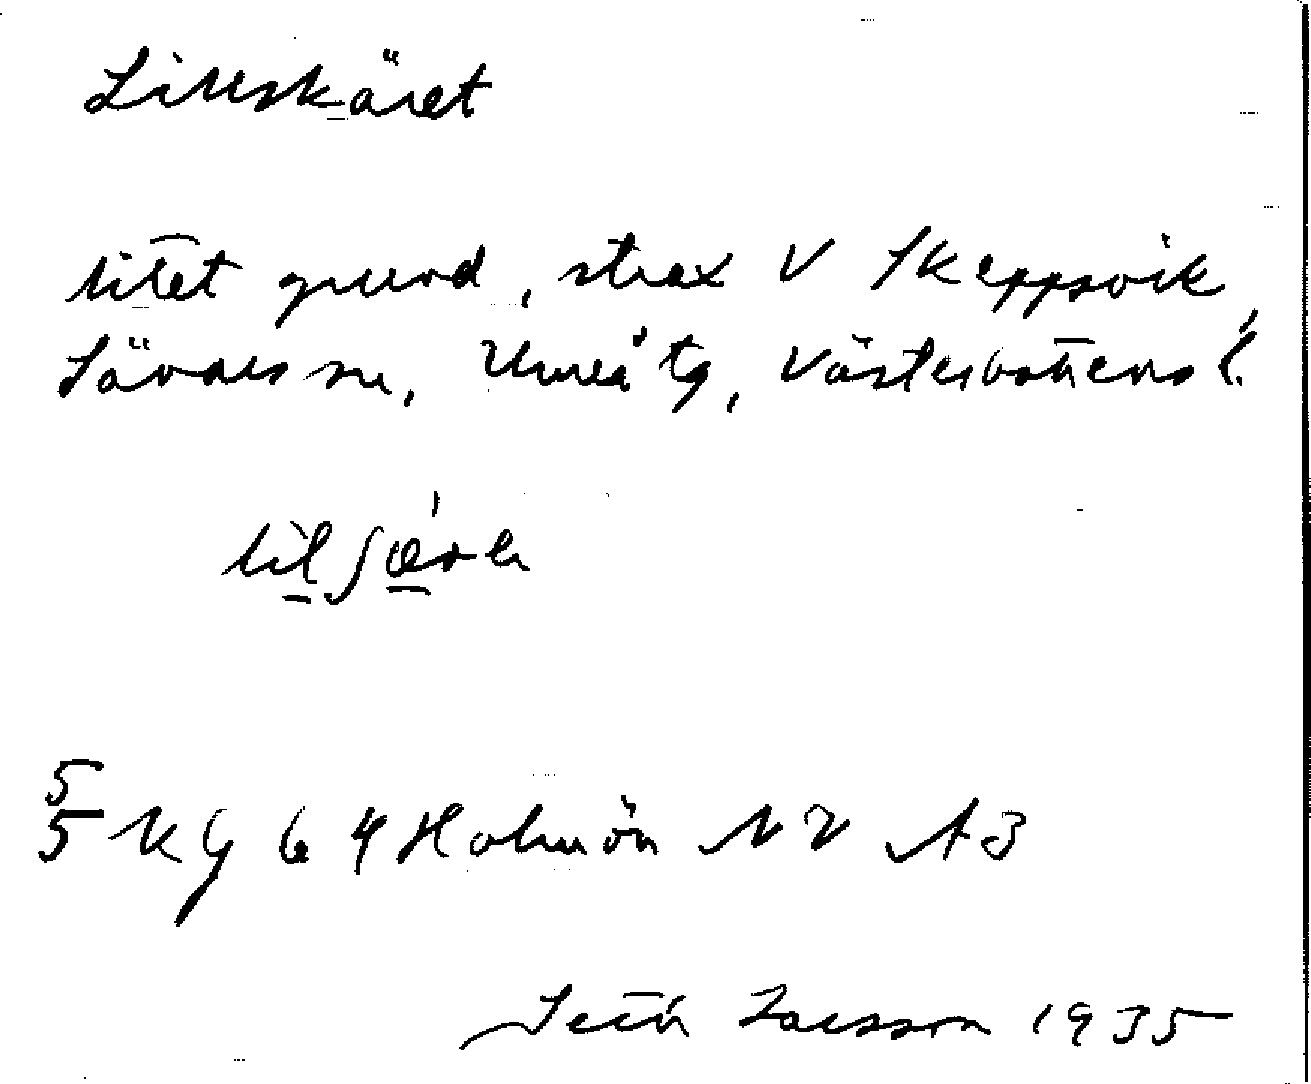 Lillskäret
litet grund, strax V Skeppsvik,
Sävars sn, Umeå tg, Västerbottens l.
Holmön NV A3
Seth Larsson 1935